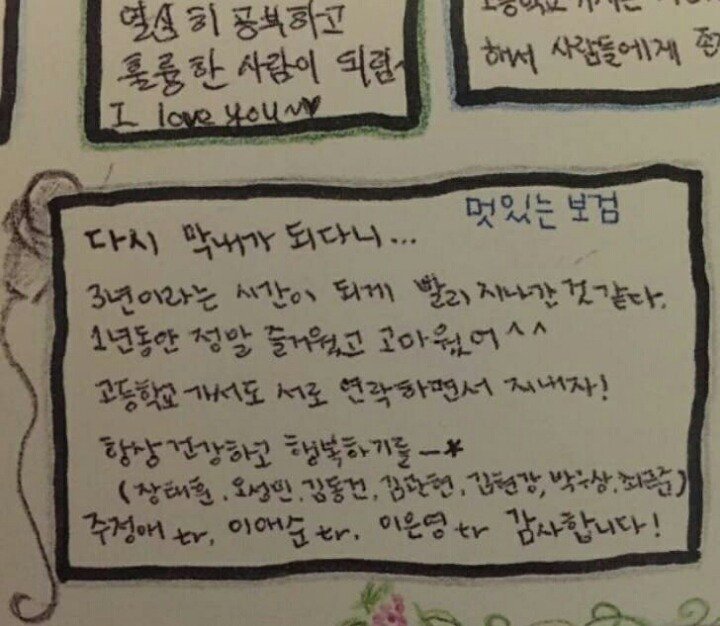 열심히 공부하고
훌륭한 사람이 되렴~
I love you~♥
해서 사람들에게 존
멋있는 보검
다시 막내가 되다니...
3년이라는 시간이 되게 빨리 지나간 것 같다.
1년동안 정말 즐거웠고 고마웠어^^
고등학교 가서도 서로 연락하면서 지내자!
항상 건강하고 행복하기를 —*
(장태훈, 오성민, 김동건, 김관현, 김현강, 박우상, )
주정애 tr, 이애순 tr, 이은영 tr 감사합니다!